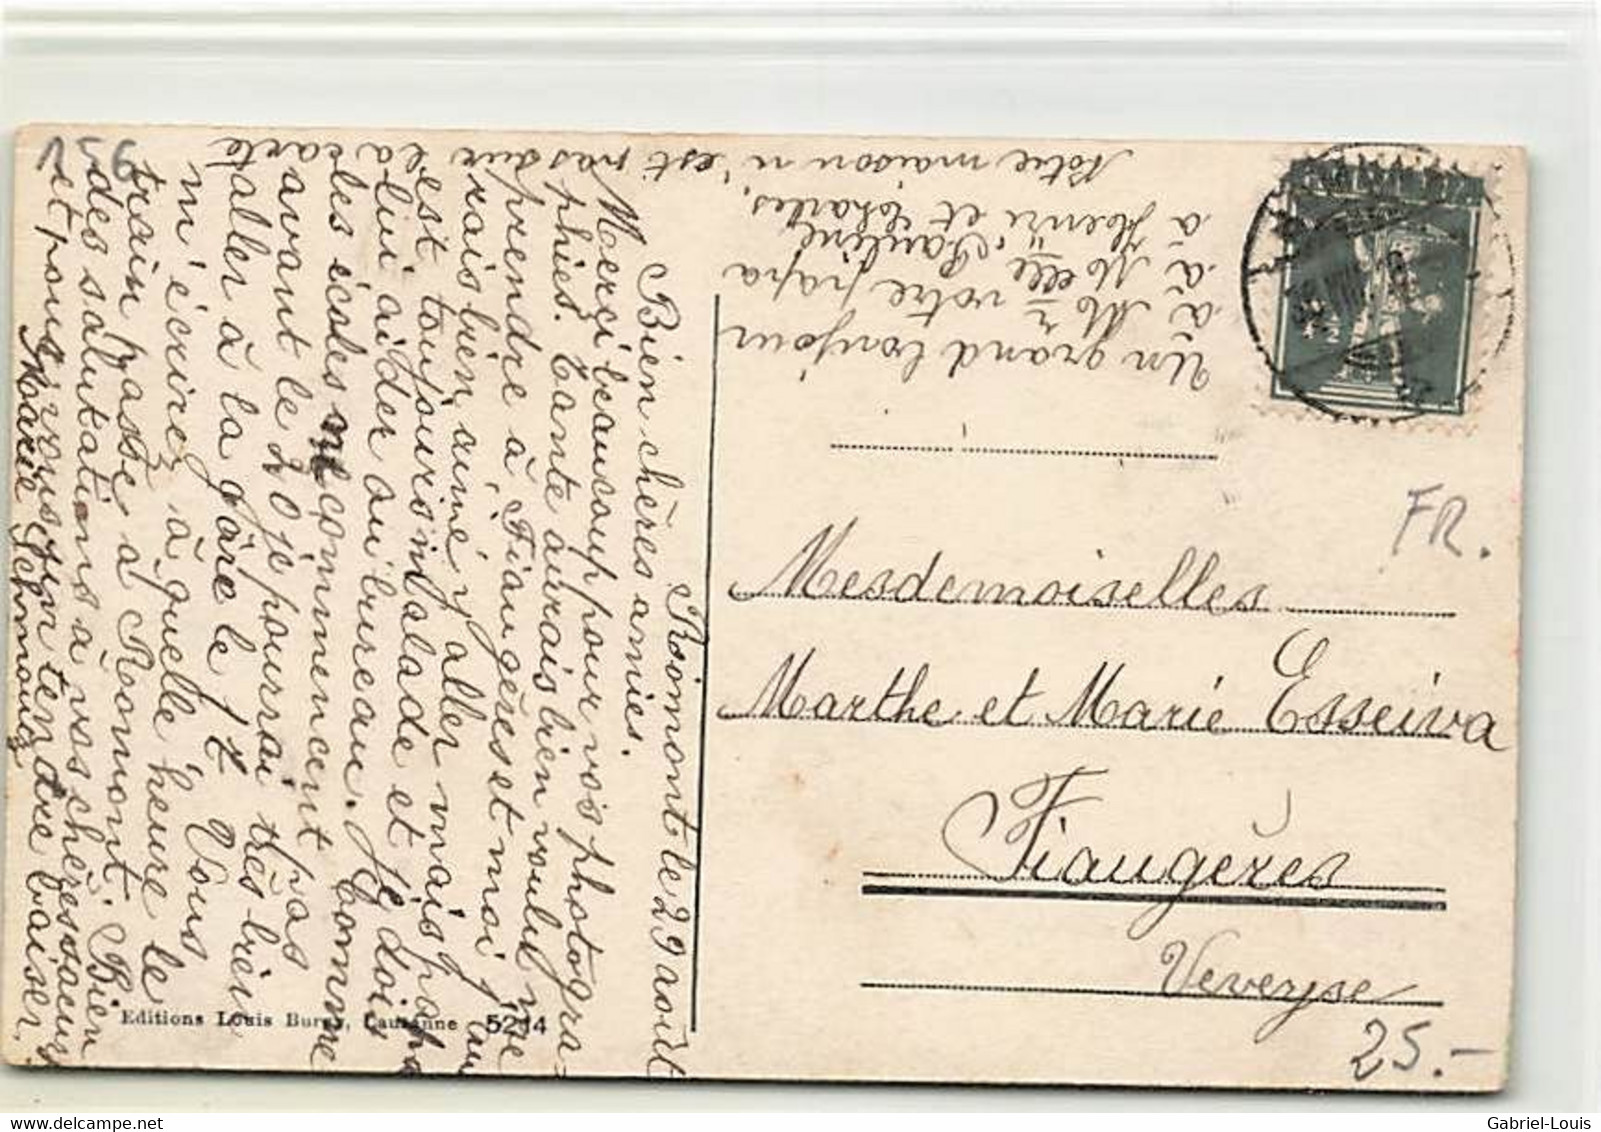 Romont le 29 août
Bien chères amies.
Merci beaucoup pour vos photogra=
phies. Tante aurais bien voulut me
prendre à Fiaugères et moi j'au
rais bien aimé y aller mais papa
est toujours malade et je dois
lui aider au bureau. Comme
les écoles ne commencent pas
avant le 20 je pourrai très bien
aller à la gare le Vous
m'écrirez à quelle heure le
train passe à Romont. Bien
des salutations à vos chères sœurs
et pour vous un tendre baiser.
Marie Schmoutz
Un grand bonjour
à Mr votre papa
à Melle Pauline
à Henri et Charles,
Notre maison n'est pas sur
la carte
1556
FR.
Mesdemoiselles
Marthe et Marie Esseiva
Fiaugères
Veveyse
25.-
Editions Louis Burgy, Lausanne 5214
Gabriel-Louis